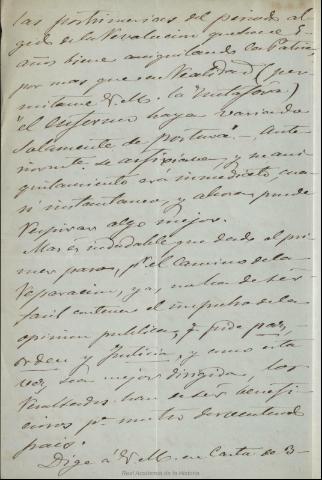 las postrimerias del periodo al
gido de la Revolucion que hace 5
años viene aniquilando la Patria,
por mas que en realidad (per-
mitame V.M. la metafora)
"el enfermo haya variado
solamente de postura". Ante-
riormente se asfixiaba, y su ani-
quilamiento era inmediato, cua-
si instantaneo, y ahora puede
respirar algo mejor.
Mas es indudable que dado el pri-
mer paso, pr. el camino de la
reparacion, ya no ha de ser
facil contener el impulso de la
opinion publica, q. pide paz,
orden y Justicia, y como esta
vez, sea mejor dirigida, los
resultados han de ser benefi-
ciosos pa. nuestro desventurado
pais.
Dige á V.M. en Carta de 3-
Real Academia de la Historia